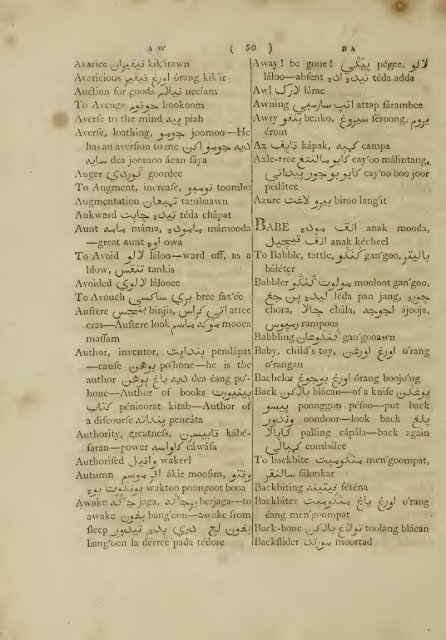 A W ( 50 ) B A
Avarice تيڠكيران kik'irawn
Avaricious اورڠ تيڠكير órang kik'ir
Auction for goods نيلام neelam
To Avenge حوكوم hookoom
Averse to the mind پيه piah
Averse, loathing, جومو joomoo—He
has an aversion to me
dea joomoo ácan sáya
Auger ڬوردي goordee
To Augment, increase, تومبو toombo
Augmentation تمبهان tambaawn
Aukward تيده چاڤت téda chápat
Aunt مامه máma, ماموده mámooda
—great aunt اوه owa
To Avoid لالو láloo—ward off, as a
blow, تنڠكس tankis
Avoided لالوي lálooee
To Avouch بري ساكسي bree sax'ée
Austere بنجس binjis, اتي كراس attee
cras—Austere look موك ماسم mooca
massam
Author, inventor, پنداڤت pendápat
—cause ڤوهن po'hone—he is the
author دي ياڠ ڤوهن dea éang po'-
hone—Author of books
كتاب pénioorat kitab—Author of
a discourse پنچاتا pencáta
Authority, greatness, كابيسرن kábé-
saran—power كواس cáwása
Authorised واكيل wakeel
Autumn اخر موسم ákir moosim, وقتو
waktoo poongoot booa
Awake جاڬ jaga, برجاڬ berjaga—to
awake باڠون bang'oon—awake from
sleep
bang'oon la derree pada tédore
Away! be gone! ڤيڬي pégee, لالو
láloo—absent تيده اده téda adda
Awl لارق lárac
Awning اتڤ سارمبي attap sárambee
Awry بنكو benko, سيروڠ séroong, يروم
érom
Ax كاڤق kápak, كمڤه campa
Axle-tree كايو مالنتڠ cay'oo málintang,
كايو بوجور پيداتي cay'oo boo joor
pédátee
Azure بيرو لاڠت biroo lang'it
BABE انق موده anak mooda,
انق كيچيل anak kécheel
To Babble, tattle, ڬڠڬو gan'goo, باليتر
báléter
Babbler مولوت ڬڠڬو mooloot gan'goo,
ليده ڤنجڠ léda pan jang, چوره
chora, چالا chála, اجوجه ájooja,
رمڤوس rampoos
Babbling ڬڠڬوان gan'gooawn
Baby, child's toy, اورڠ اورڠن o'rang
o'rangan
Bachelor اورڠ بوجڠ órang boojo'ng
Back بلاكن blácan—of a knife ڤوڠڬن
ڤيسو poonggon péesoo—put back
اوندور oondoor—look back ڤلڠ
كاڤالا palling cápála—back again
كمبالي coinbálee
To backbite مڠومڤت men'goompat,
سالنكر sálonkar
Backbiting فتنه féténa
Backbiter اورڠ ياڠ مڠومڤت o'rang
éang men'goompat
Back-bone تولڠ بلاكن toolang blácan
Backslider مورتد moortad